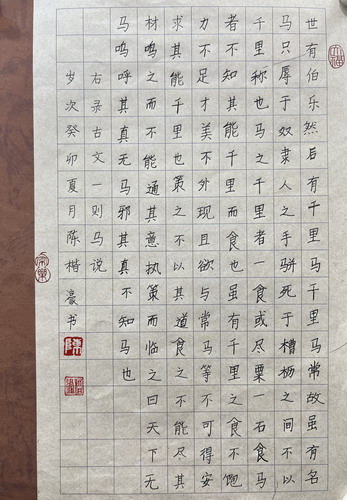 世有伯乐然后有千里马千里马常故虽有名
马只辱于奴隶人之手骈死于槽枥之间不以
千里称也马之千里者一食或尽粟一石食马
者不知其能千里而食也虽有千里之食不饱
力不足才美不外现且欲与常马等不可得安
求其能千里也策之不以其道食之不能尽其
材鸣之而不能通其意执策而临之曰天下无
马呜呼其真无马邪其真不知马也
右录古文一则马说
岁次癸卯夏月陈楷豪书